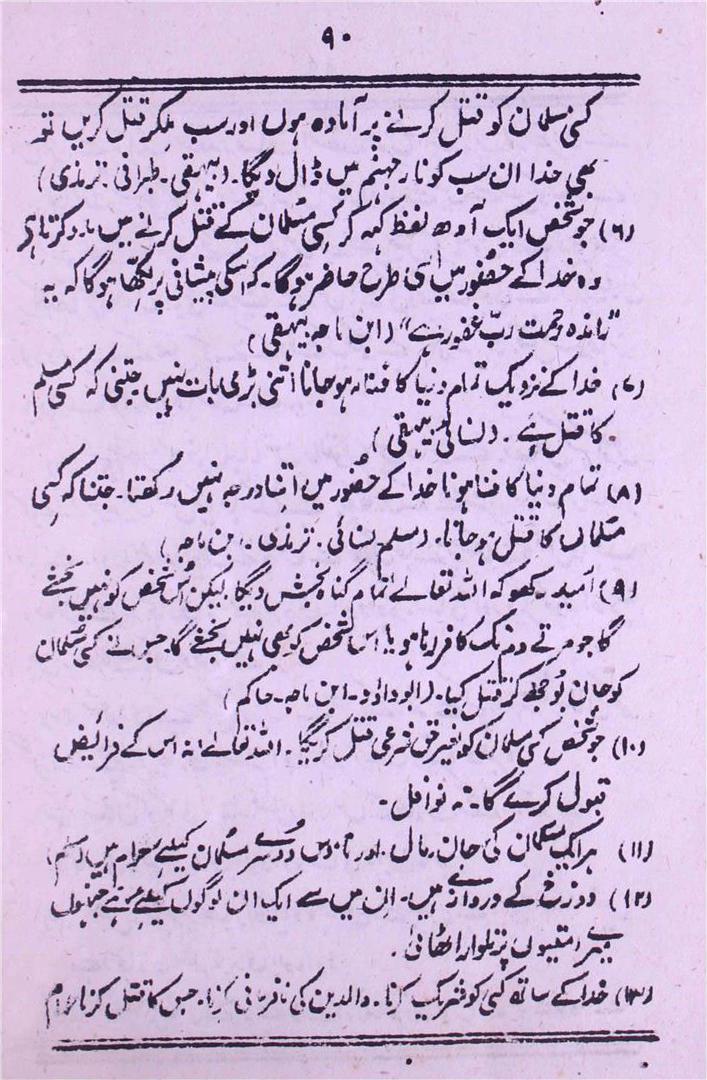 ۹۰
کسی مسلمان کو قتل کرنے پر آمادہ ہوں اور سب ملکر قتل کریں تو
بھی خدا ان سب کو نار جہنم میں ڈال دیگا۔ (بیہقی۔ طبرانی۔ ترمذی)
(۶) جو شخص ایک آدھ لفظ کہہ کر کسی مسلمان کے قتل کرنے میں مدد کرتا ہے
وہ خدا کے حضور میں اسی طرح حاضر ہوگا۔ کہ اسکی پیشانی پر لکھا ہوگا کہ یہ
"راندہ رحمت ربّ غفور ہے" (ابن ماجہ بیہقی)
(۷) خدا کے نزدیک تمام دنیا کا فنا ہو جانا اتنی بڑی بات نہیں جتنی کہ کسی مسلم
کا قتل ہے۔ (نسائی بیہقی)
(۸) تمام دنیا کا فنا ہونا خدا کے حضور میں اتنا درجہ نہیں رکھتا۔ جتنا کہ کسی
مسلماں کا قتل ہو جانا۔ (مسلم نسائی۔ ترمذی۔ ابن ماجہ)
(۹) اُمید رکھو کہ اللہ تعالےٰ تمام گناہ بخش دیگا۔ لیکن اُس شخص کو نہیں بخشے
گا جو مرتے دم تک کافر رہا ہو یا اس شخص کو بھی نہیں بخشے گا۔ جس نے کسی مسلمان
کو جان بُوجھ کر قتل کیا۔ (ابو داؤد۔ ابن ماجہ۔ حاکم)
(۱۰) جو شخص کسی مسلمان کو بغیر حق شرعی قتل کریگا۔ اللہ تعالےٰ نہ اس کے فرایض
قبول کرے گا۔ نہ نوافل۔
(۱۱) ہر ایک مسلمان کی جان۔ مال۔ اور ناموس دوسرے مسلمان کیلئے حرام ہیں (مسلم)
(۱۲) دوزخ کے دروازے ہیں۔ ان میں سے ایک ان لوگوں کیلئے ہے جنہوں
میرے امتیوں پر تلوار اٹھائی۔
(۱۳) خدا کے ساتھ کسی کو شریک کرنا۔ والدین کی نافرمانی کرنا۔ جس کا قتل کرنا حرام